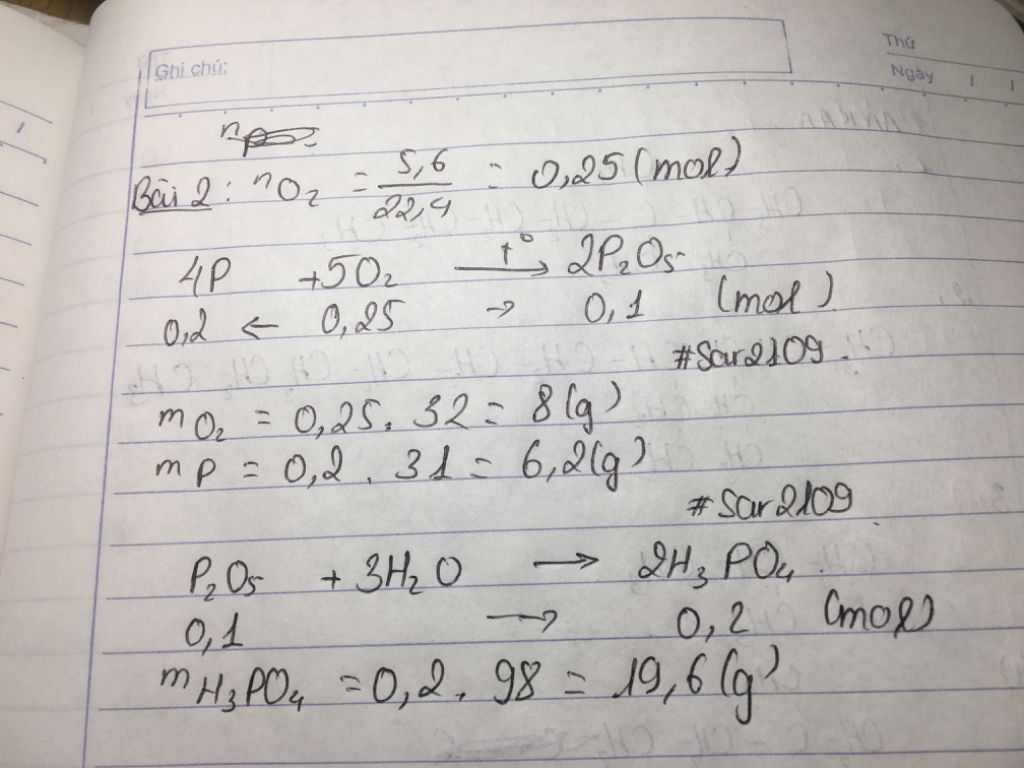 Ghi chú:
Thứ
Ngày / /
Bài 2: nO₂ = 5,6/22,4 = 0,25 (mol)
4P + 5O₂ —t°→ 2P₂O₅
0,2 ← 0,25 → 0,1 (mol)
#Sar2109.
mO₂ = 0,25 . 32 = 8 (g)
mP = 0,2 . 31 = 6,2 (g)
#Sar2109
P₂O₅ + 3H₂O → 2H₃PO₄.
0,1 → 0,2 (mol)
mH₃PO₄ = 0,2 . 98 = 19,6 (g)